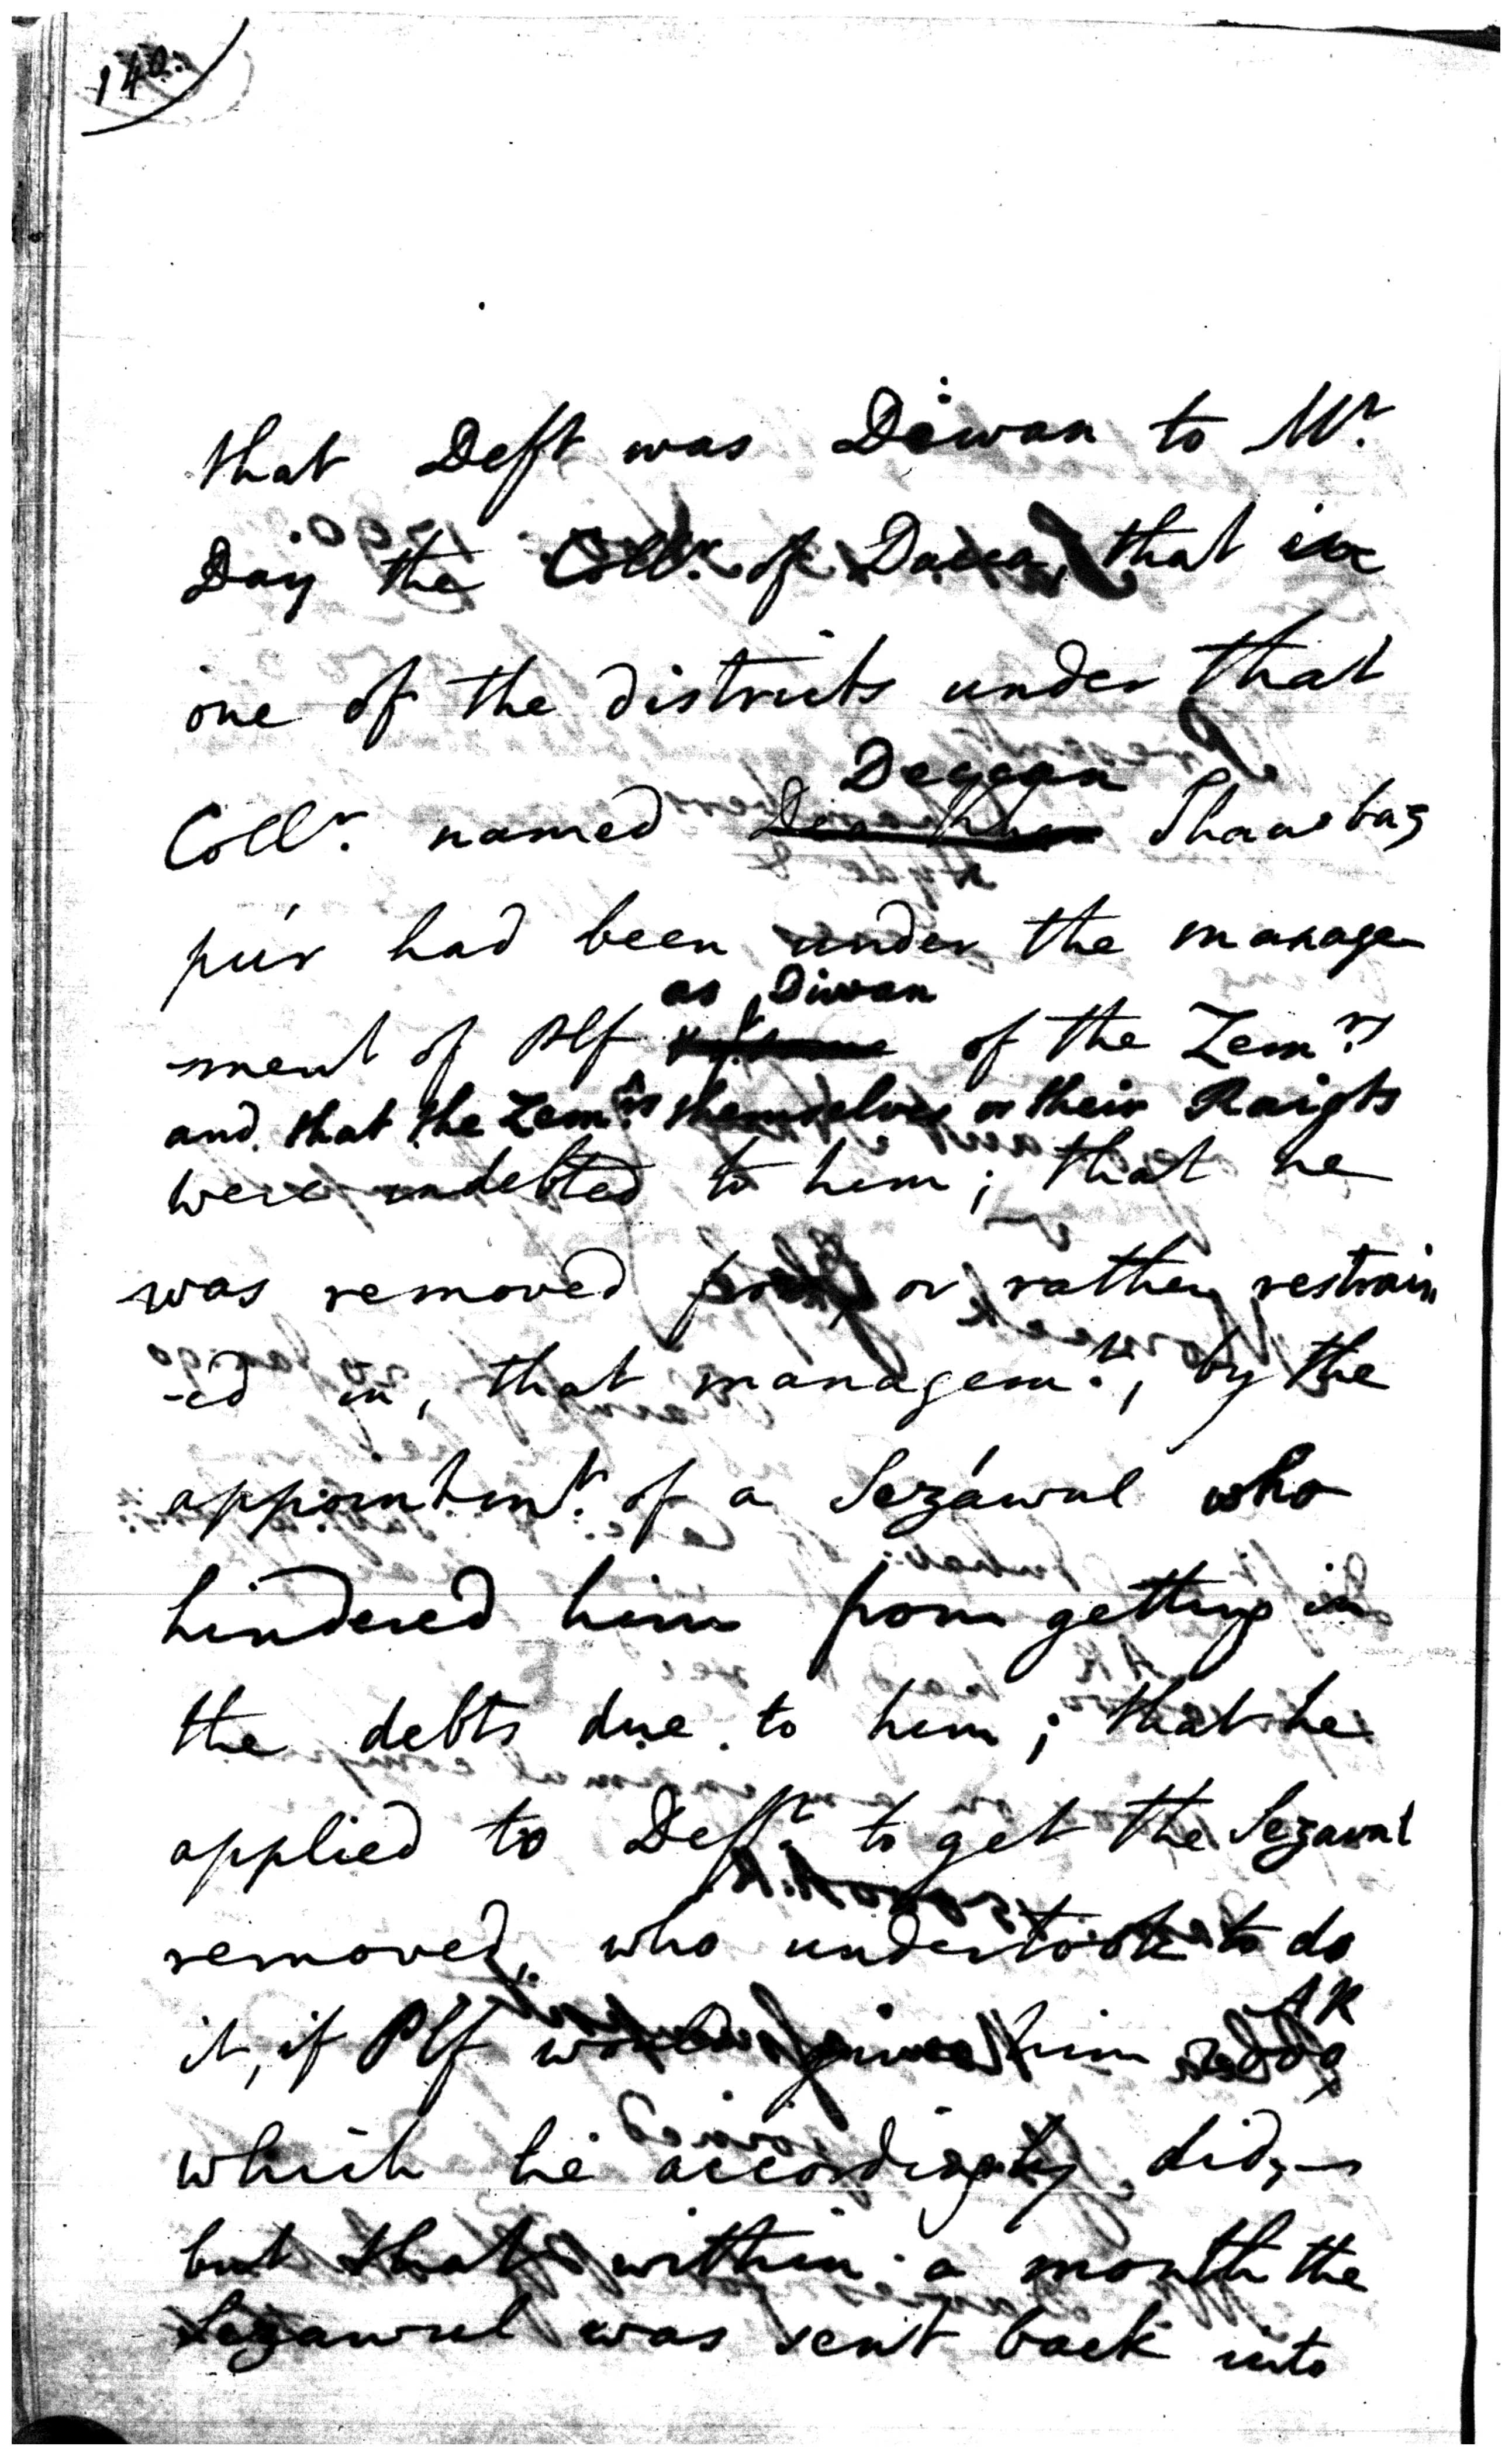 140.
that Deft was Díwan to Mr.
Day the Collr. of Dacca, that in
one of the districts under that
Deccan
Collr. named Shawbaz
púr had been under the manage
as Diwan
-ment of Plf of the Zemrs
and that the Zemrs themselves or their Raiyts
were indebted to him; that he
was removed from, or rather restrain
-ed in, that managemt., by the
appointmt. of a Sezáwul who
hindered him from getting in
the debts due to him; that he
applied to Deft. to get the Sezawul
removed, who undertook to do
AR
it, if Plf would give him
which he accordingly did,
but that within a month the
Sezawul was sent back into